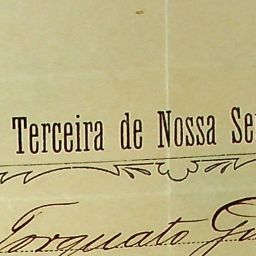 Terceira de Nossa Se
Torquato Gu